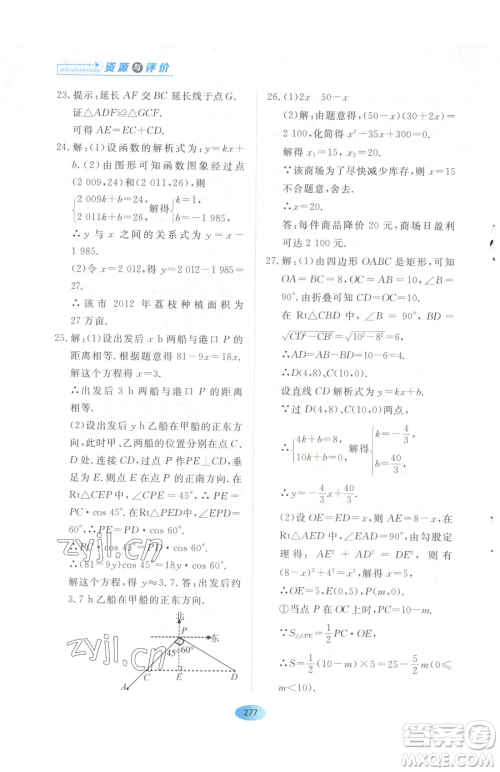 资源与评价
23. 提示:延长 AF 交 BC 延长线于点 G.
证△ADF≌△GCF.
可得 AE=EC+CD.
24. 解:(1)设函数的解析式为 y=kx+
b.(2)由图形可知函数图象经过点
(2 009,24)和(2 011,26),则
{2 009k+b=24, 解得 {k=1,
2 011k+b=26 b=-1 985.
∴y 与 x 之间的关系式为 y=x-
1 985.
(2)令 x=2 012,得 y=27.
∴该市 2012 年荔枝种植面积为
27 万亩.
25. 解:(1)设出发后 x h 两船与港口 P 的
距离相等.根据题意得 81-9x=18x.
解这个方程得 x=3.
∴出发后 3 h 两船与港口 P 的距离
相等.
(2)设出发后 y h 乙船在甲船的正东方
向,此时甲、乙两船的位置分别在点 C,D
处,连接 CD,过点 P 作 PE⊥CD,垂足为
E.则点 E 在点 P 的正南方向.
在 Rt△CEP 中,∠CPE=45°,∴PE
=PC·cos 45°.在 Rt△PED 中,∠EPD
=60°,∴PE=PD·cos 60°.
∴PC·cos 45°=PD·cos 60°.
∴(81-9y)cos 45°=18y·cos 60°.
解这个方程,得 y≈3.7.答:出发后
约 3.7 h 乙船在甲船的正东方向.
北
P
东
45° 60°
A
C
E
D
26. (1)2x 50-x
(2)解:由题意得,(50-x)(30+2x)=
2 100,化简得 x²-35x+300=0.
解得 x₁=15,x₂=20.
∵该商场为了尽快减少库存,则 x=15
不合题意,舍去.
∴x=20.
答:每件商品降价 20 元,商场日盈利
可达 2 100 元.
27. 解:(1)由四边形 OABC 是矩形,可知
OA=BC=8,OC=AB=10,∠B=
90°.由折叠可得 CD=OC=10.
在 Rt△CBD 中,∠B=90°,BD=
√CD²-CB²=√10²-8²=6.
∴AD=10-6=4.
∴D(4,8),C(10,0).
设直线 CD 解析式为 y=kx+b,
∵过 D(4,8),C(10,0)两点,
∴{4k+b=8, 解得 {k=-4/3,
10k+b=0. b=40/3.
∴y=-4/3x+40/3.
(2)设 OE=ED=x,则 AE=8-x,
在 Rt△AED 中,∠EAD=90°,由勾股
定理得 AE²+AD²=DE²,即
(8-x)²+4²=x²,解得 x=5,
∴OE=5,E(0,5),P(m,0).
①当点 P 在 OC 上时,OP=m,
∵S△CPE=1/2PC·OE,
∴S=1/2(10-m)×5=25-5/2m(0
≤m<10).
277
zyjl.cn
zyjl.cn